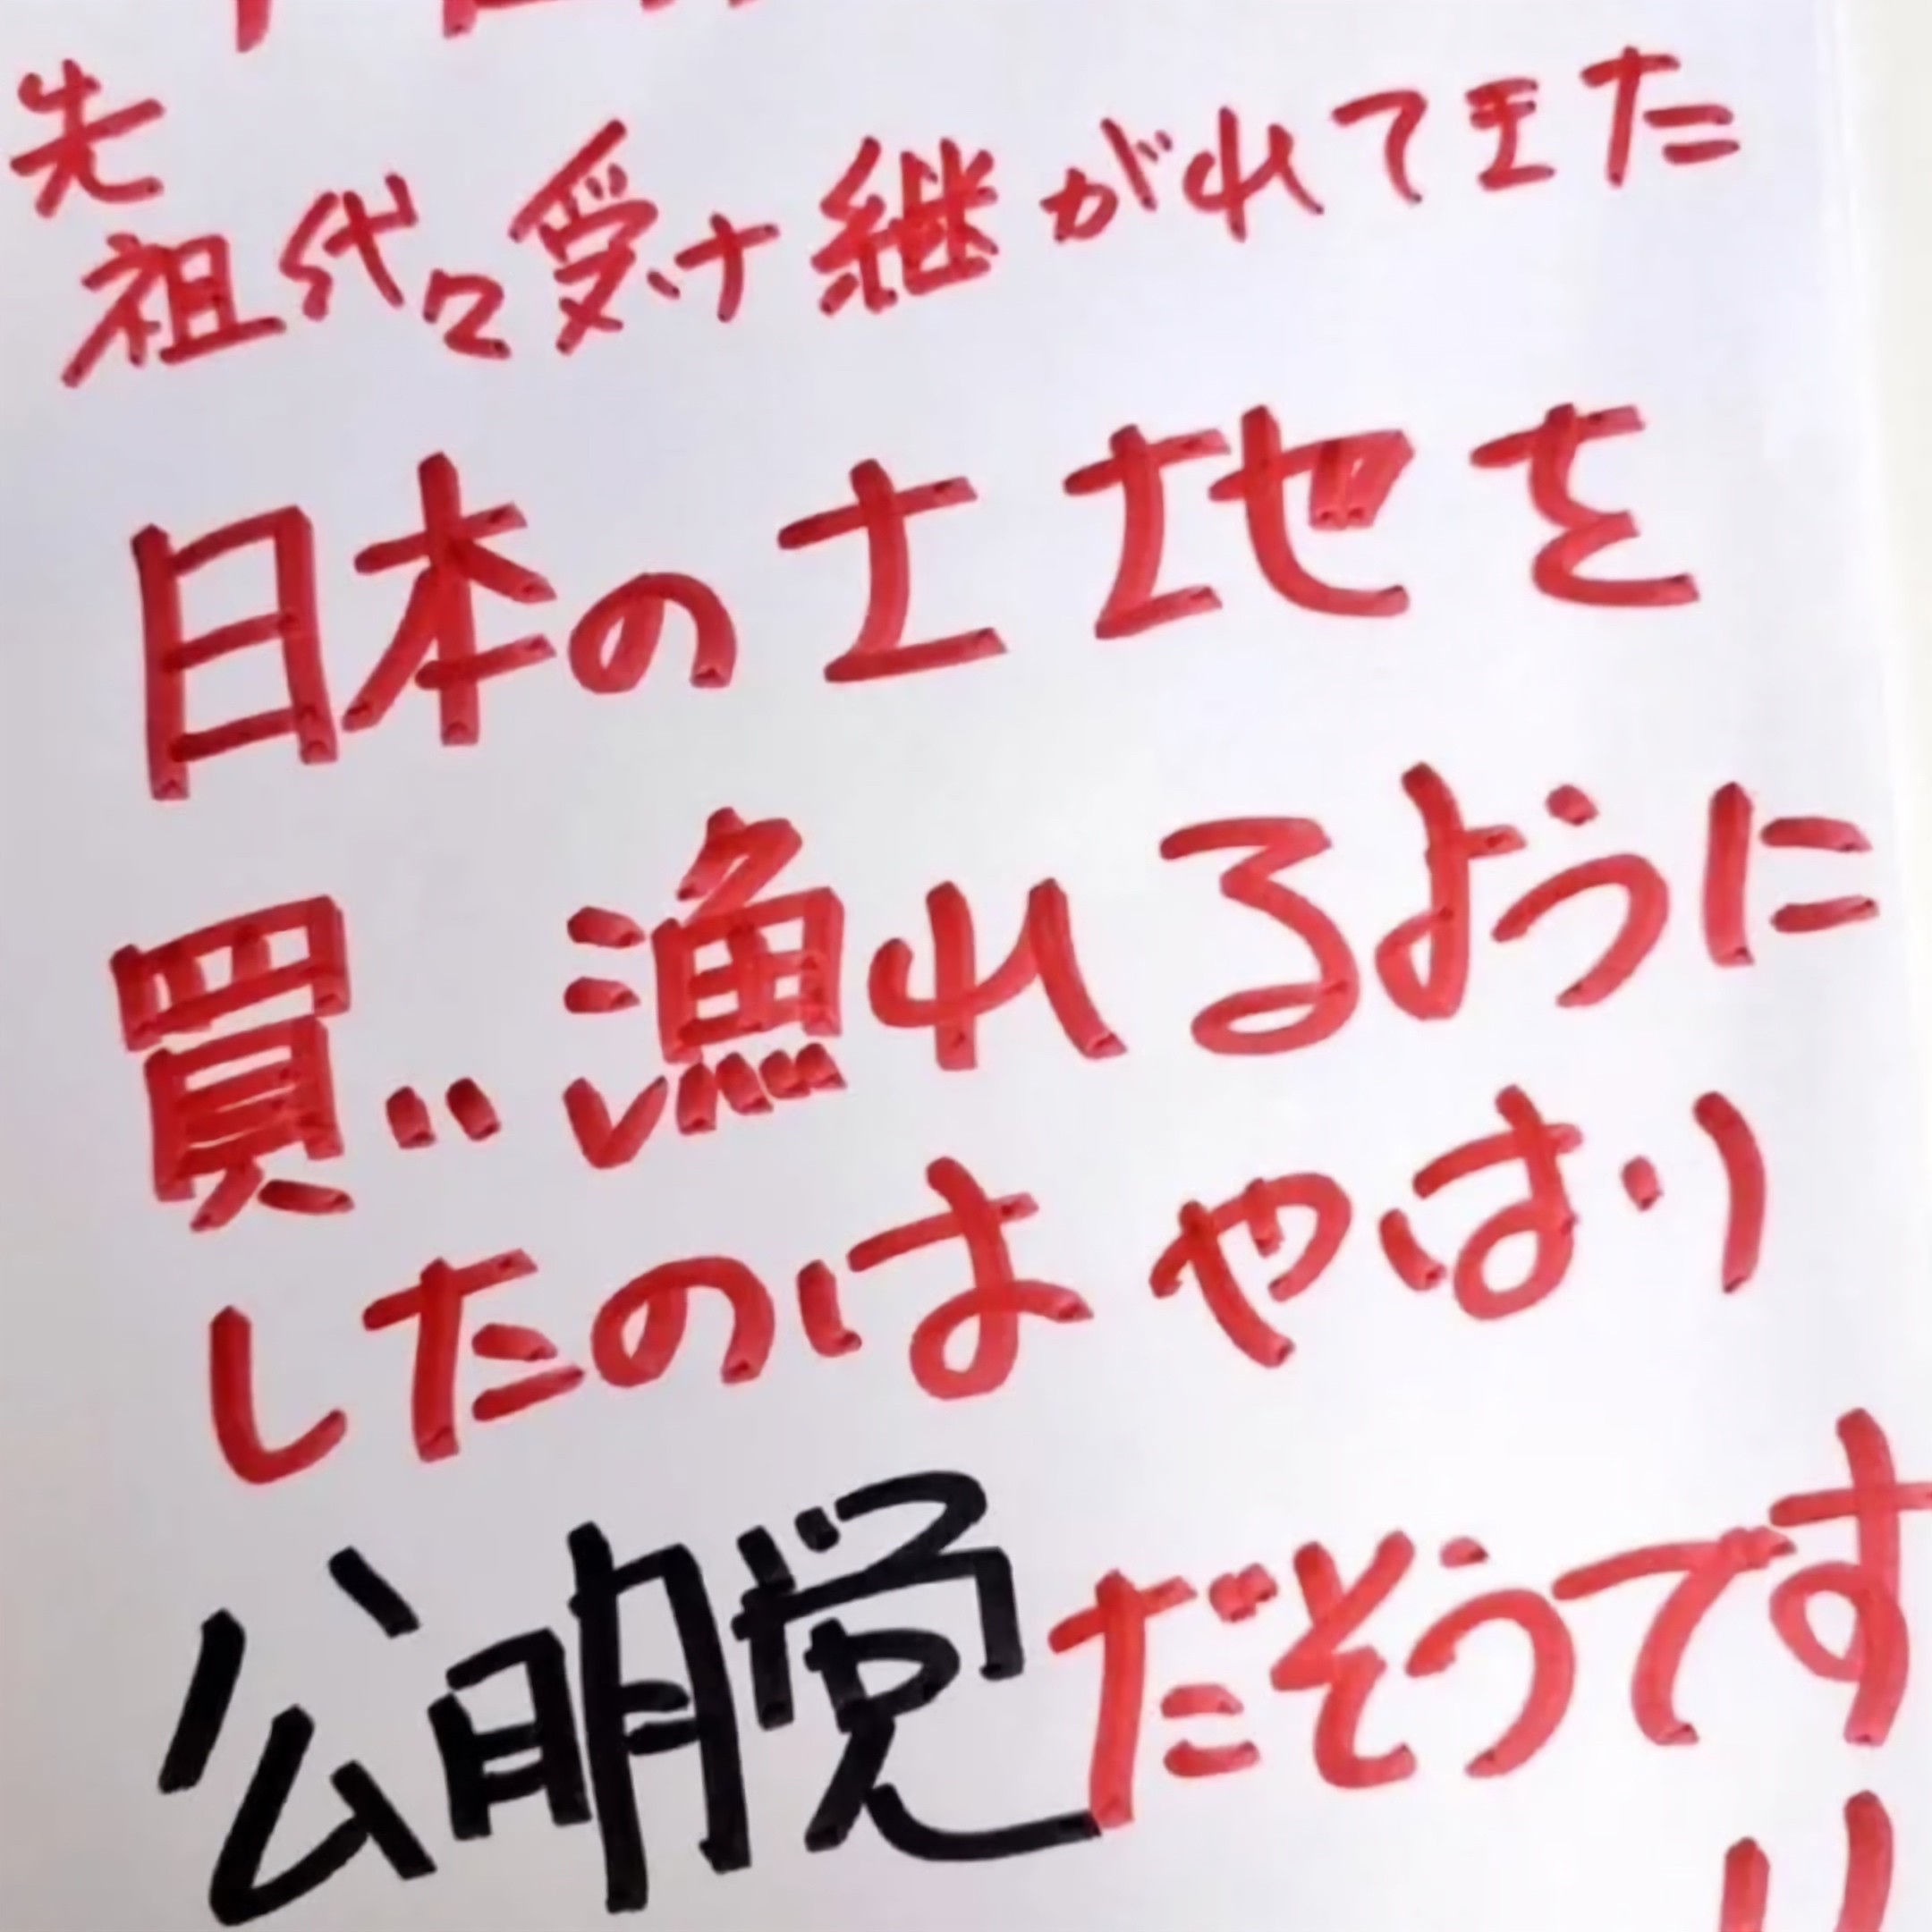 先祖代々受け継がれてきた
日本の土地を
買い漁れるように
したのはやはり
公明党だそうです